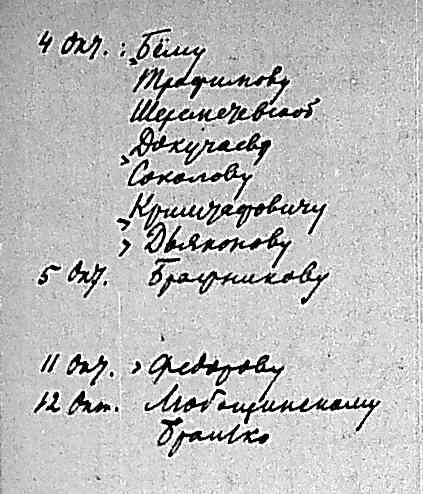 4 Окт. : Бёму
Трофимову
Шершеневской
> Докучаеву
Соколову
> Криштафовичу
> Дьяконову
5 Окт. Бражникову
11 Окт. > Федорову
12 Окт. Любощинскому